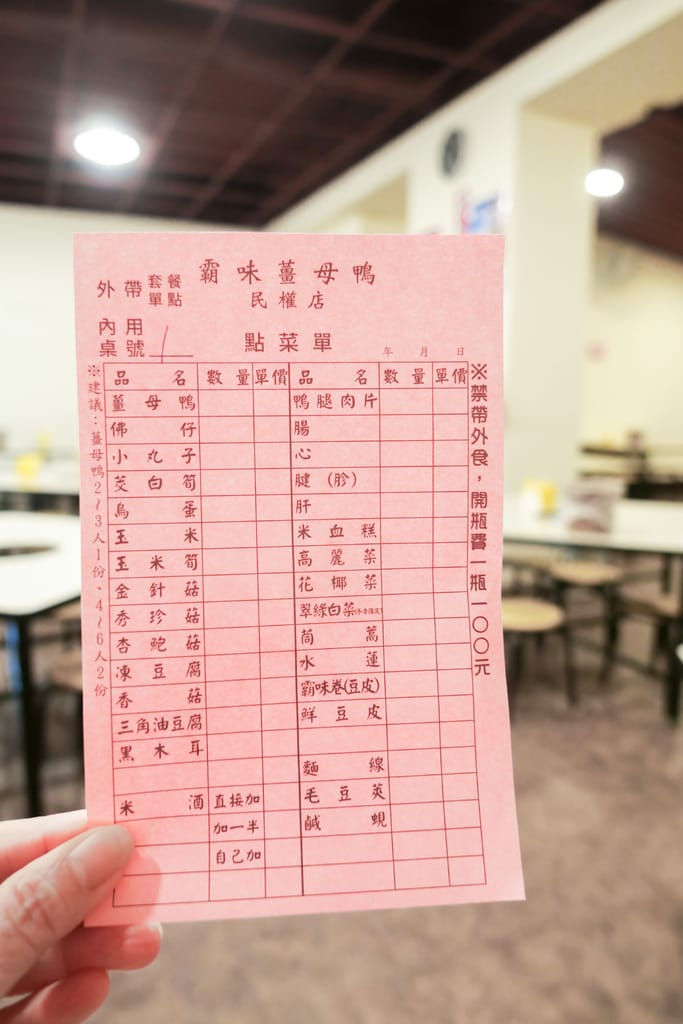 霸味薑母鴨
外帶 套餐 單點
民權店
內用
桌號 1
點菜單
年 月 日
※建議：薑母鴨2~3人1份、4~6人2份
品名 數量 單價 品名 數量 單價
薑母鴨 鴨腿肉片
佛仔 腸
小丸子 心
茭白筍 腱(胗)
鳥蛋 肝
玉米 米血糕
玉米筍 高麗菜
金針菇 花椰菜
秀珍菇 翠綠白菜
杏鮑菇 茼蒿
凍豆腐 水蓮
香菇 霸味卷(豆皮)
三角油豆腐 鮮豆皮
黑木耳
麵線
米酒 直接加 毛豆莢
加一半 鹹蜆
自己加
※禁帶外食，開瓶費一瓶一〇〇元